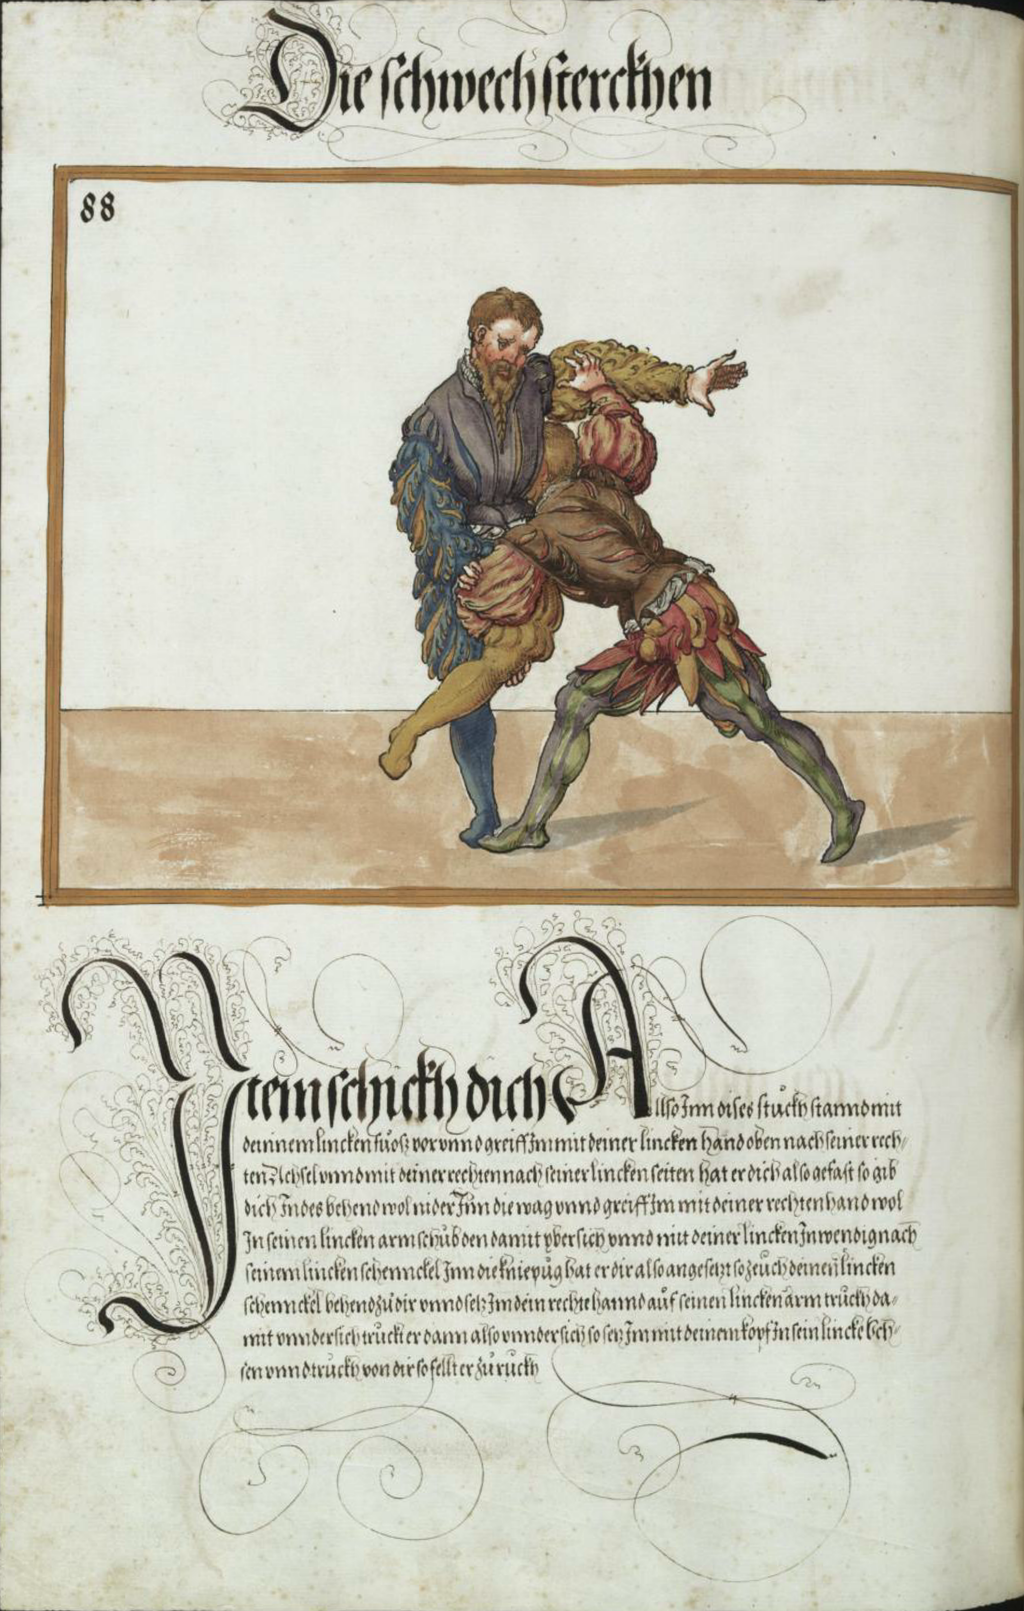 Die schwech sterckhen
88
Item schickh dich Allso Inn dises stuckh stannd mit
deinnem lincken fuosz vor vnnd greiff Im mit deiner lincken hand oben nach seiner rech-
ten Achsel vnnd mit deiner rechten nach seiner lincken seiten hat er dich also gefast so gib
dich Indes behend wol nider Inn die wag vnnd greiff Im mit deiner rechten hand wol
In seinen lincken arm schub den damit vber sich vnnd mit deiner lincken Inwendig nach
seinem lincken schennckel Inn die kniepug hat er dir also angesetzt so zeuch deinen lincken
schennckel behend zu dir vnnd setz Im dein rechte hannd auf seinen lincken arm truckh da-
mit vnnder sich truckt er dann also vnnder sich so setz Im mit deinem kopf In sein lincke Ech-
sen vnnd truckh von dir so fellt er zu ruckh